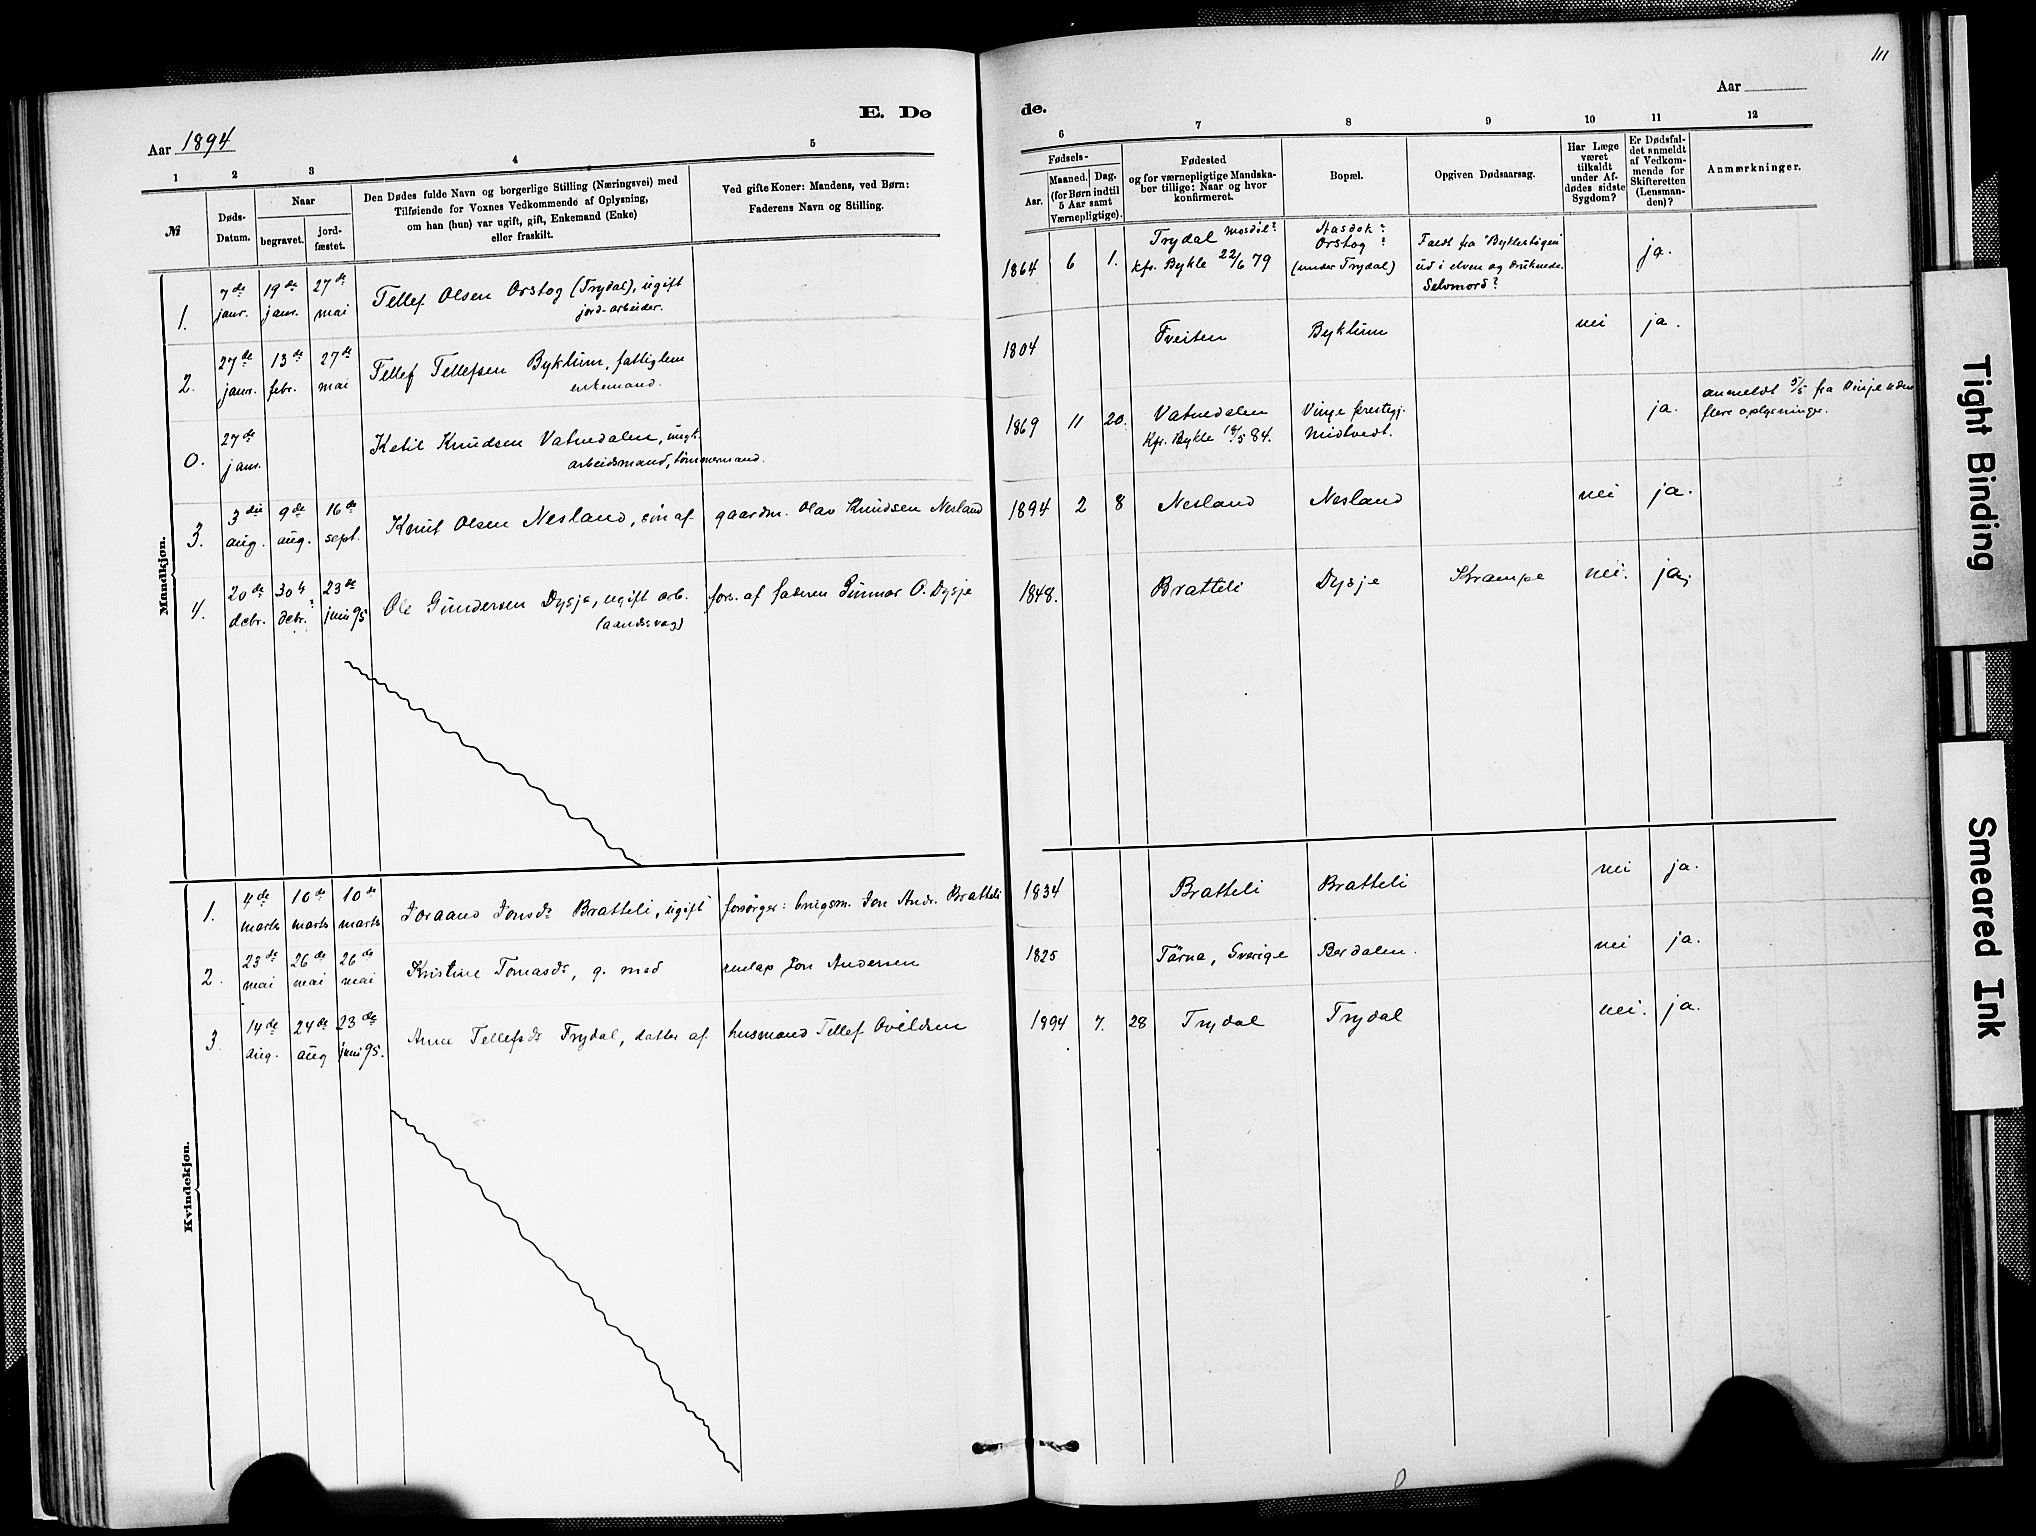 111
E. Dø
de.
Aar 1894
Aar
1 2 3 4 5 6 7 8 9 10 11 12
№
Døds-
Datum.
Naar
begravet.
jord-
fæstet.
Den Dødes fulde Navn og borgerlige Stilling (Næringsvei) med
Tilføiende for Voxnes Vedkommende af Oplysning,
om han (hun) var ugift, gift, Enkemand (Enke)
eller fraskilt.
Ved gifte Koner: Mandens, ved Børn:
Faderens Navn og Stilling.
Fødsels-
Aar.
Maaned. Dag.
(for Børn indtil
5 Aar samt
Værnepligtige).
Fødested
og for værnepligtige Mandska-
ber tillige: Naar og hvor
konfirmeret.
Bopæl.
Opgiven Dødsaarsag.
Har Læge
været
tilkaldt
under Af-
dødes sidste
Sygdom?
Er Dødsfal-
det anmeldt
af Vedkom-
mende for
Skifteretten
(Lensman-
den)?
Anmærkninger.
Mandkjøn.
1.
7de janr.
19de janr.
27de mai
Tellef Olsen Orstog (Trydal), ugift
jord-arbeider.
1864 6 1.
Trydal Mosdøl?
kfr. Bykle 22/6 79
Aasdok?
Orstog?
(under Trydal)
Faldt fra "Byklestigen"
ud i elven og druknede.
Selvmord?
ja.
2.
27de janr.
13de febr.
27de mai
Tellef Tellefsen Byklum, fattiglem
enkemand.
1804
Tveiten
Byklum
nei
ja.
0.
27de janr.
Ketil Knudsen Vatnedalen, ungk.
arbeidsmand, tømmermand.
1869 11 20.
Vatnedalen
Kfr. Bykle 18/5 84.
Vinje prestegj.
Midtvedt.
ja.
anmeldt 5/5 fra Vinje uden
flere oplysninger.
3.
3die aug.
9de aug.
16de sept.
Knut Olsen Nesland, søn af
gaardm. Olav Knudsen Nesland
1894 2 8
Nesland
Nesland
nei
ja.
4.
20de debr.
30te debr.?
23de juni 95
Ole Gundersen Dysje, ugift arb.
(aandssvag)
fors. af faderen Gunnar O. Dysje
1848.
Bratteli
Dysje
Krampe
nei.
ja.
Kvindekjøn.
1.
4de marts
10de marts
10de marts
Joraand Jonsdr Bratteli, ugift
forsørger: brugsm. Jon Andr. Bratteli
1834
Bratteli
Bratteli
nei
ja.
2.
23de mai
26de mai
26de mai
Kristine Tomasdr, g. med
renlap Jon Andersen
1825
Tärna, Sverige
Berdalen.
nei
ja.
3.
14de aug.
24de aug
23de juni 95.
Anne Tellefsdr Trydal, datter af
husmand Tellef Avildsen
1894 7. 28
Trydal
Trydal
nei.
ja.
Tight Binding
Smeared Ink